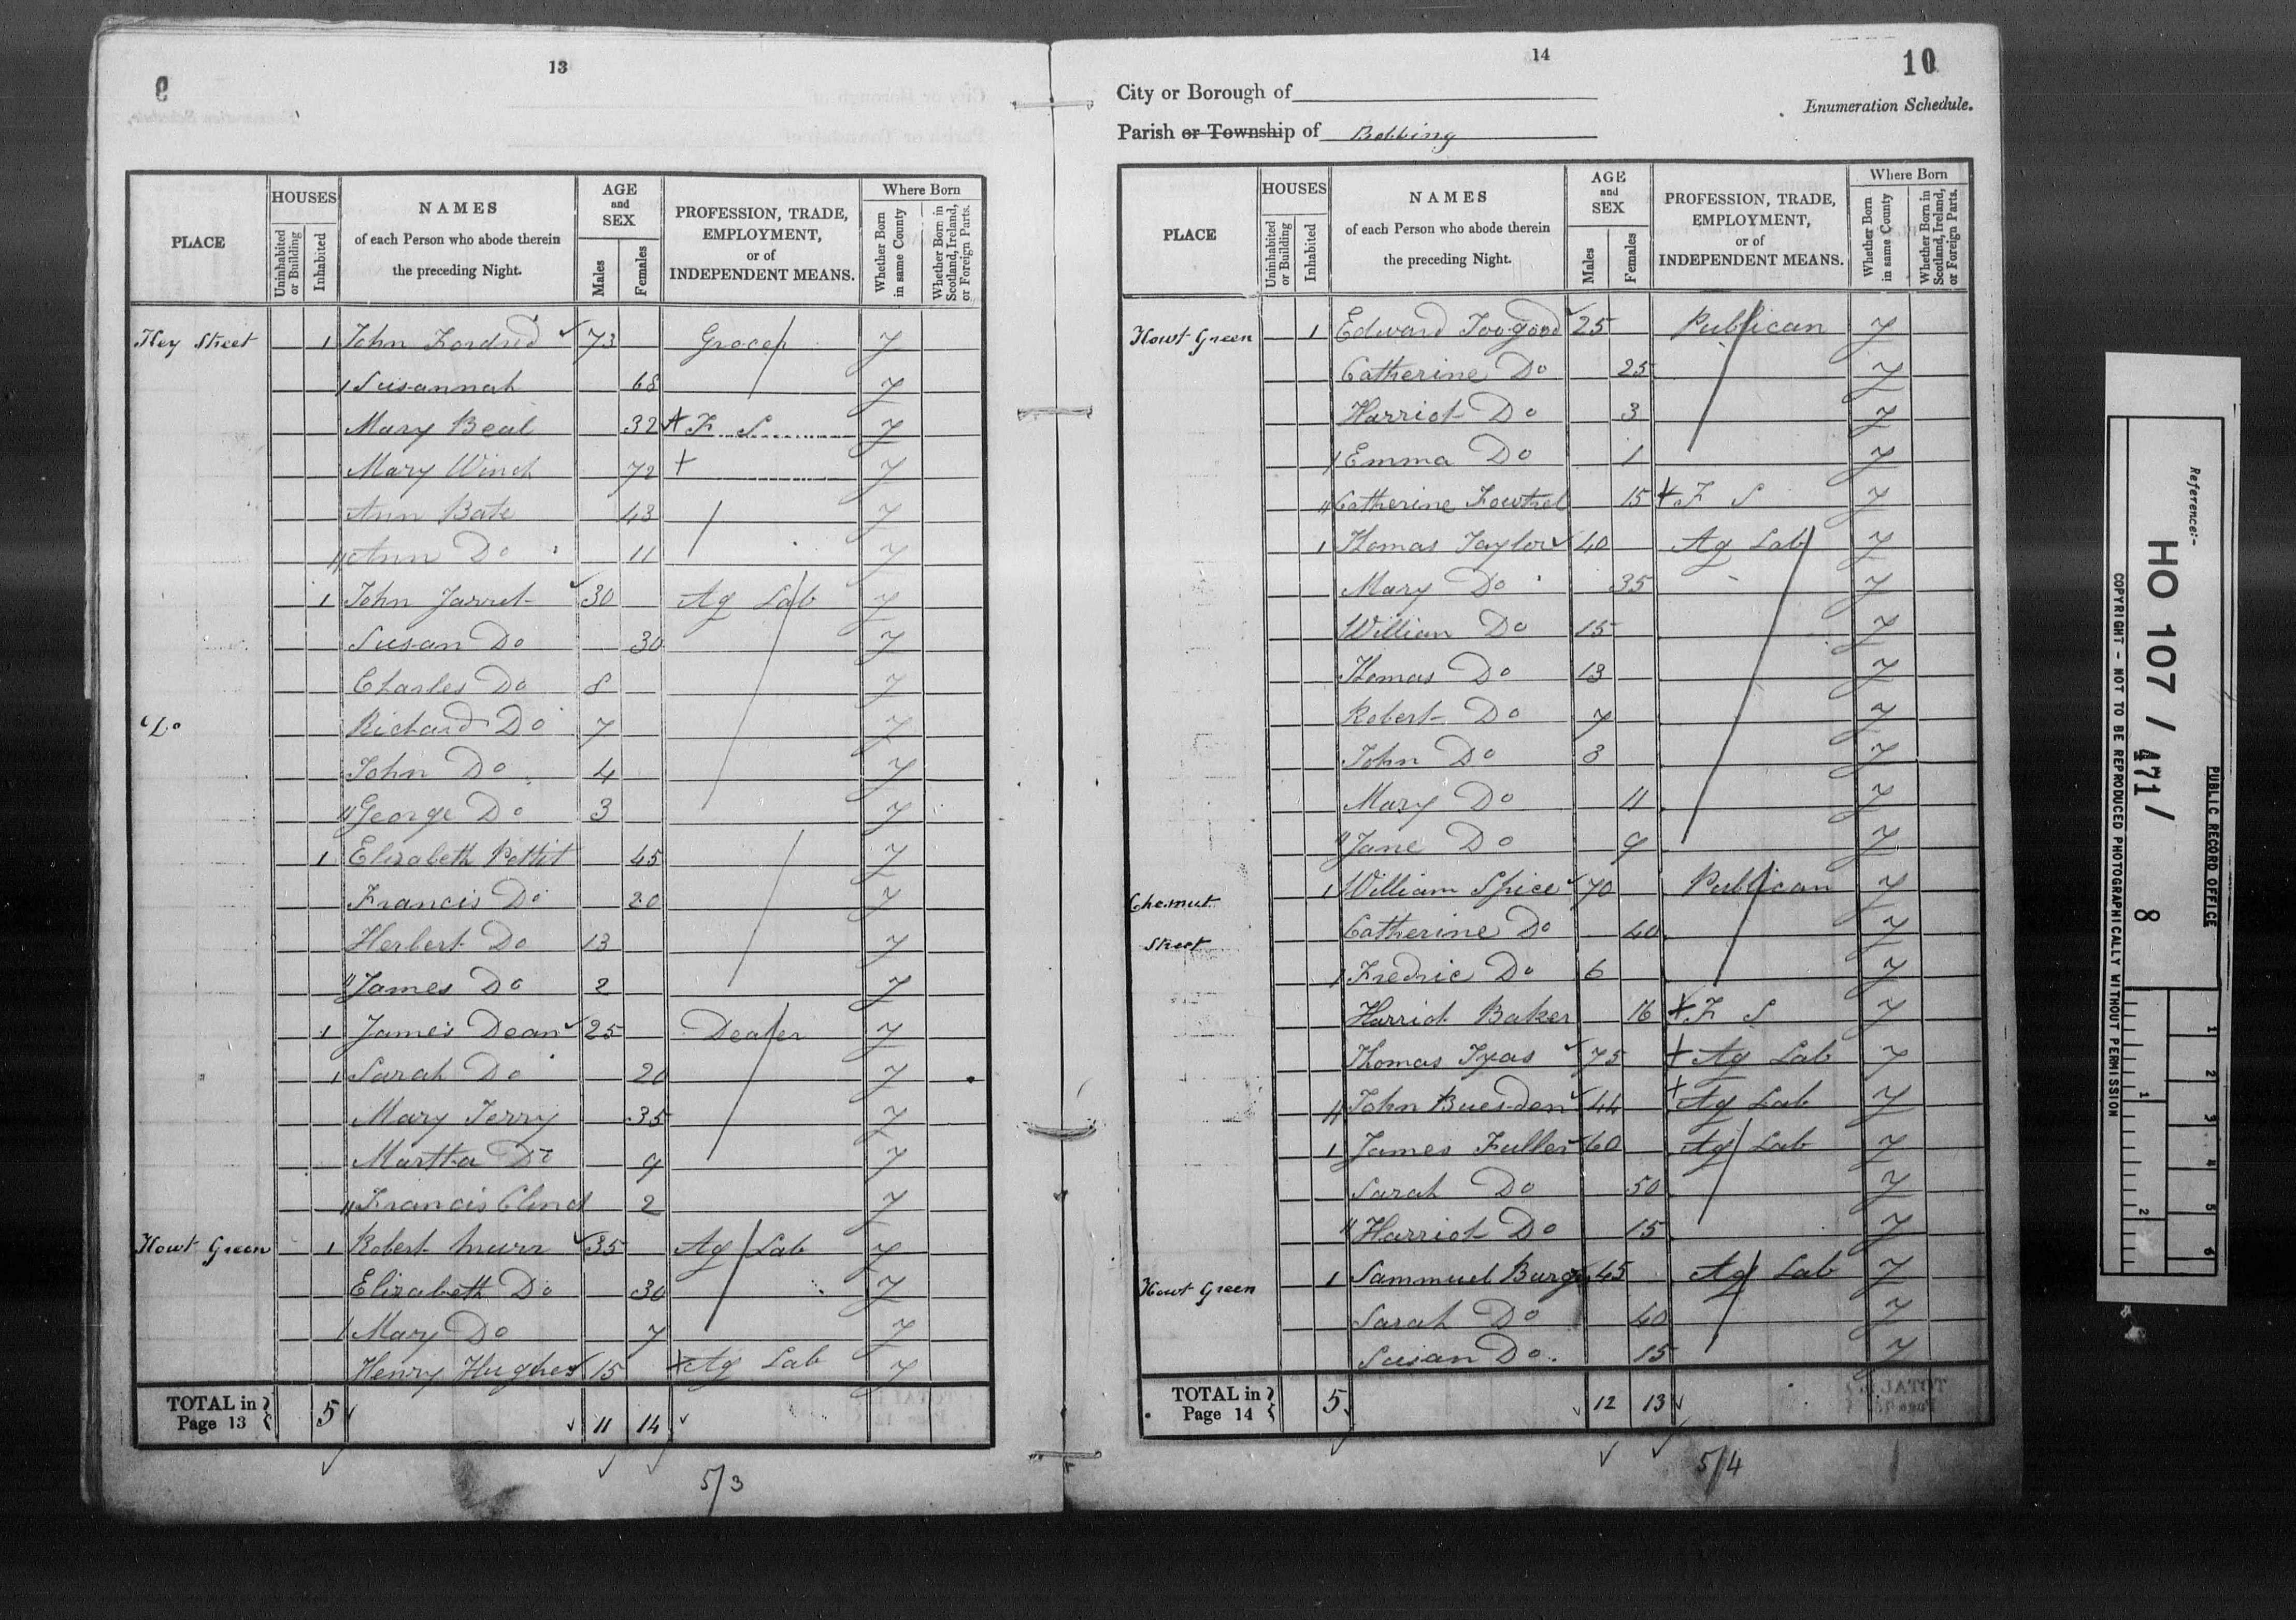 9
13
PLACE | HOUSES | NAMES of each Person who abode therein the preceding Night. | AGE and SEX | PROFESSION, TRADE, EMPLOYMENT, or of INDEPENDENT MEANS. | Where Born
Uninhabited or Building | Inhabited | Males | Females | Whether Born in same County | Whether Born in Scotland, Ireland, or Foreign Parts.
Key Street 1 John Fordred 73 Grocer y
Susannah 68 y
Mary Beal 32 F S y
Mary Winch 72 y
Ann Bate 43 y
Ann Do 11 y
1 John Jarret 30 Ag Lab y
Susan Do 30 y
Charles Do 8 y
Do Richard Do 7 y
John Do 4 y
George Do 3 y
1 Elizabeth Pettit 45 y
Francis Do 20 y
Herbert Do 13 y
James Do 2 y
1 James Dean 25 Dealer y
Sarah Do 20 y
Mary Terry 35 y
Martha Do 9 y
Francis 2 y
Howt Green 1 Robert 35 Ag Lab y
Elizabeth Do 30 y
Mary Do 7 y
Henry Hughes 15 Ag Lab y
TOTAL in Page 13 5 11 14
5/3
14
10
City or Borough of
Enumeration Schedule.
Parish or Township of Bobbing
PLACE | HOUSES | NAMES of each Person who abode therein the preceding Night. | AGE and SEX | PROFESSION, TRADE, EMPLOYMENT, or of INDEPENDENT MEANS. | Where Born
Uninhabited or Building | Inhabited | Males | Females | Whether Born in same County | Whether Born in Scotland, Ireland, or Foreign Parts.
Howt Green 1 Edward Toogood 25 Publican y
Catherine Do 25 y
Harriot Do 3 y
Emma Do 1 y
Catherine 15 F S y
1 Thomas Taylor 40 Ag Lab y
Mary Do 35 y
William Do 15 y
Thomas Do 13 y
Robert Do 7 y
John Do 3 y
Mary Do 11 y
Jane Do 9 y
Chesnut 1 William Spice 70 Publican y
Street Catherine Do 40 y
Fredric Do 6 y
Harriot Baker 16 F S y
Thomas Tyas 75 Ag Lab y
John Buesden 44 Ag Lab y
1 James Fuller 60 Ag Lab y
Sarah Do 50 y
Harriot Do 15 y
Howt Green 1 Sammuel Burge 45 Ag Lab y
Sarah Do 40 y
Susan Do 15 y
TOTAL in Page 14 5 12 13
5/4
Reference:-
HO 107 / 471 / 8
PUBLIC RECORD OFFICE
COPYRIGHT - NOT TO BE REPRODUCED PHOTOGRAPHICALLY WITHOUT PERMISSION
1 2 3 4 5 6
1 2